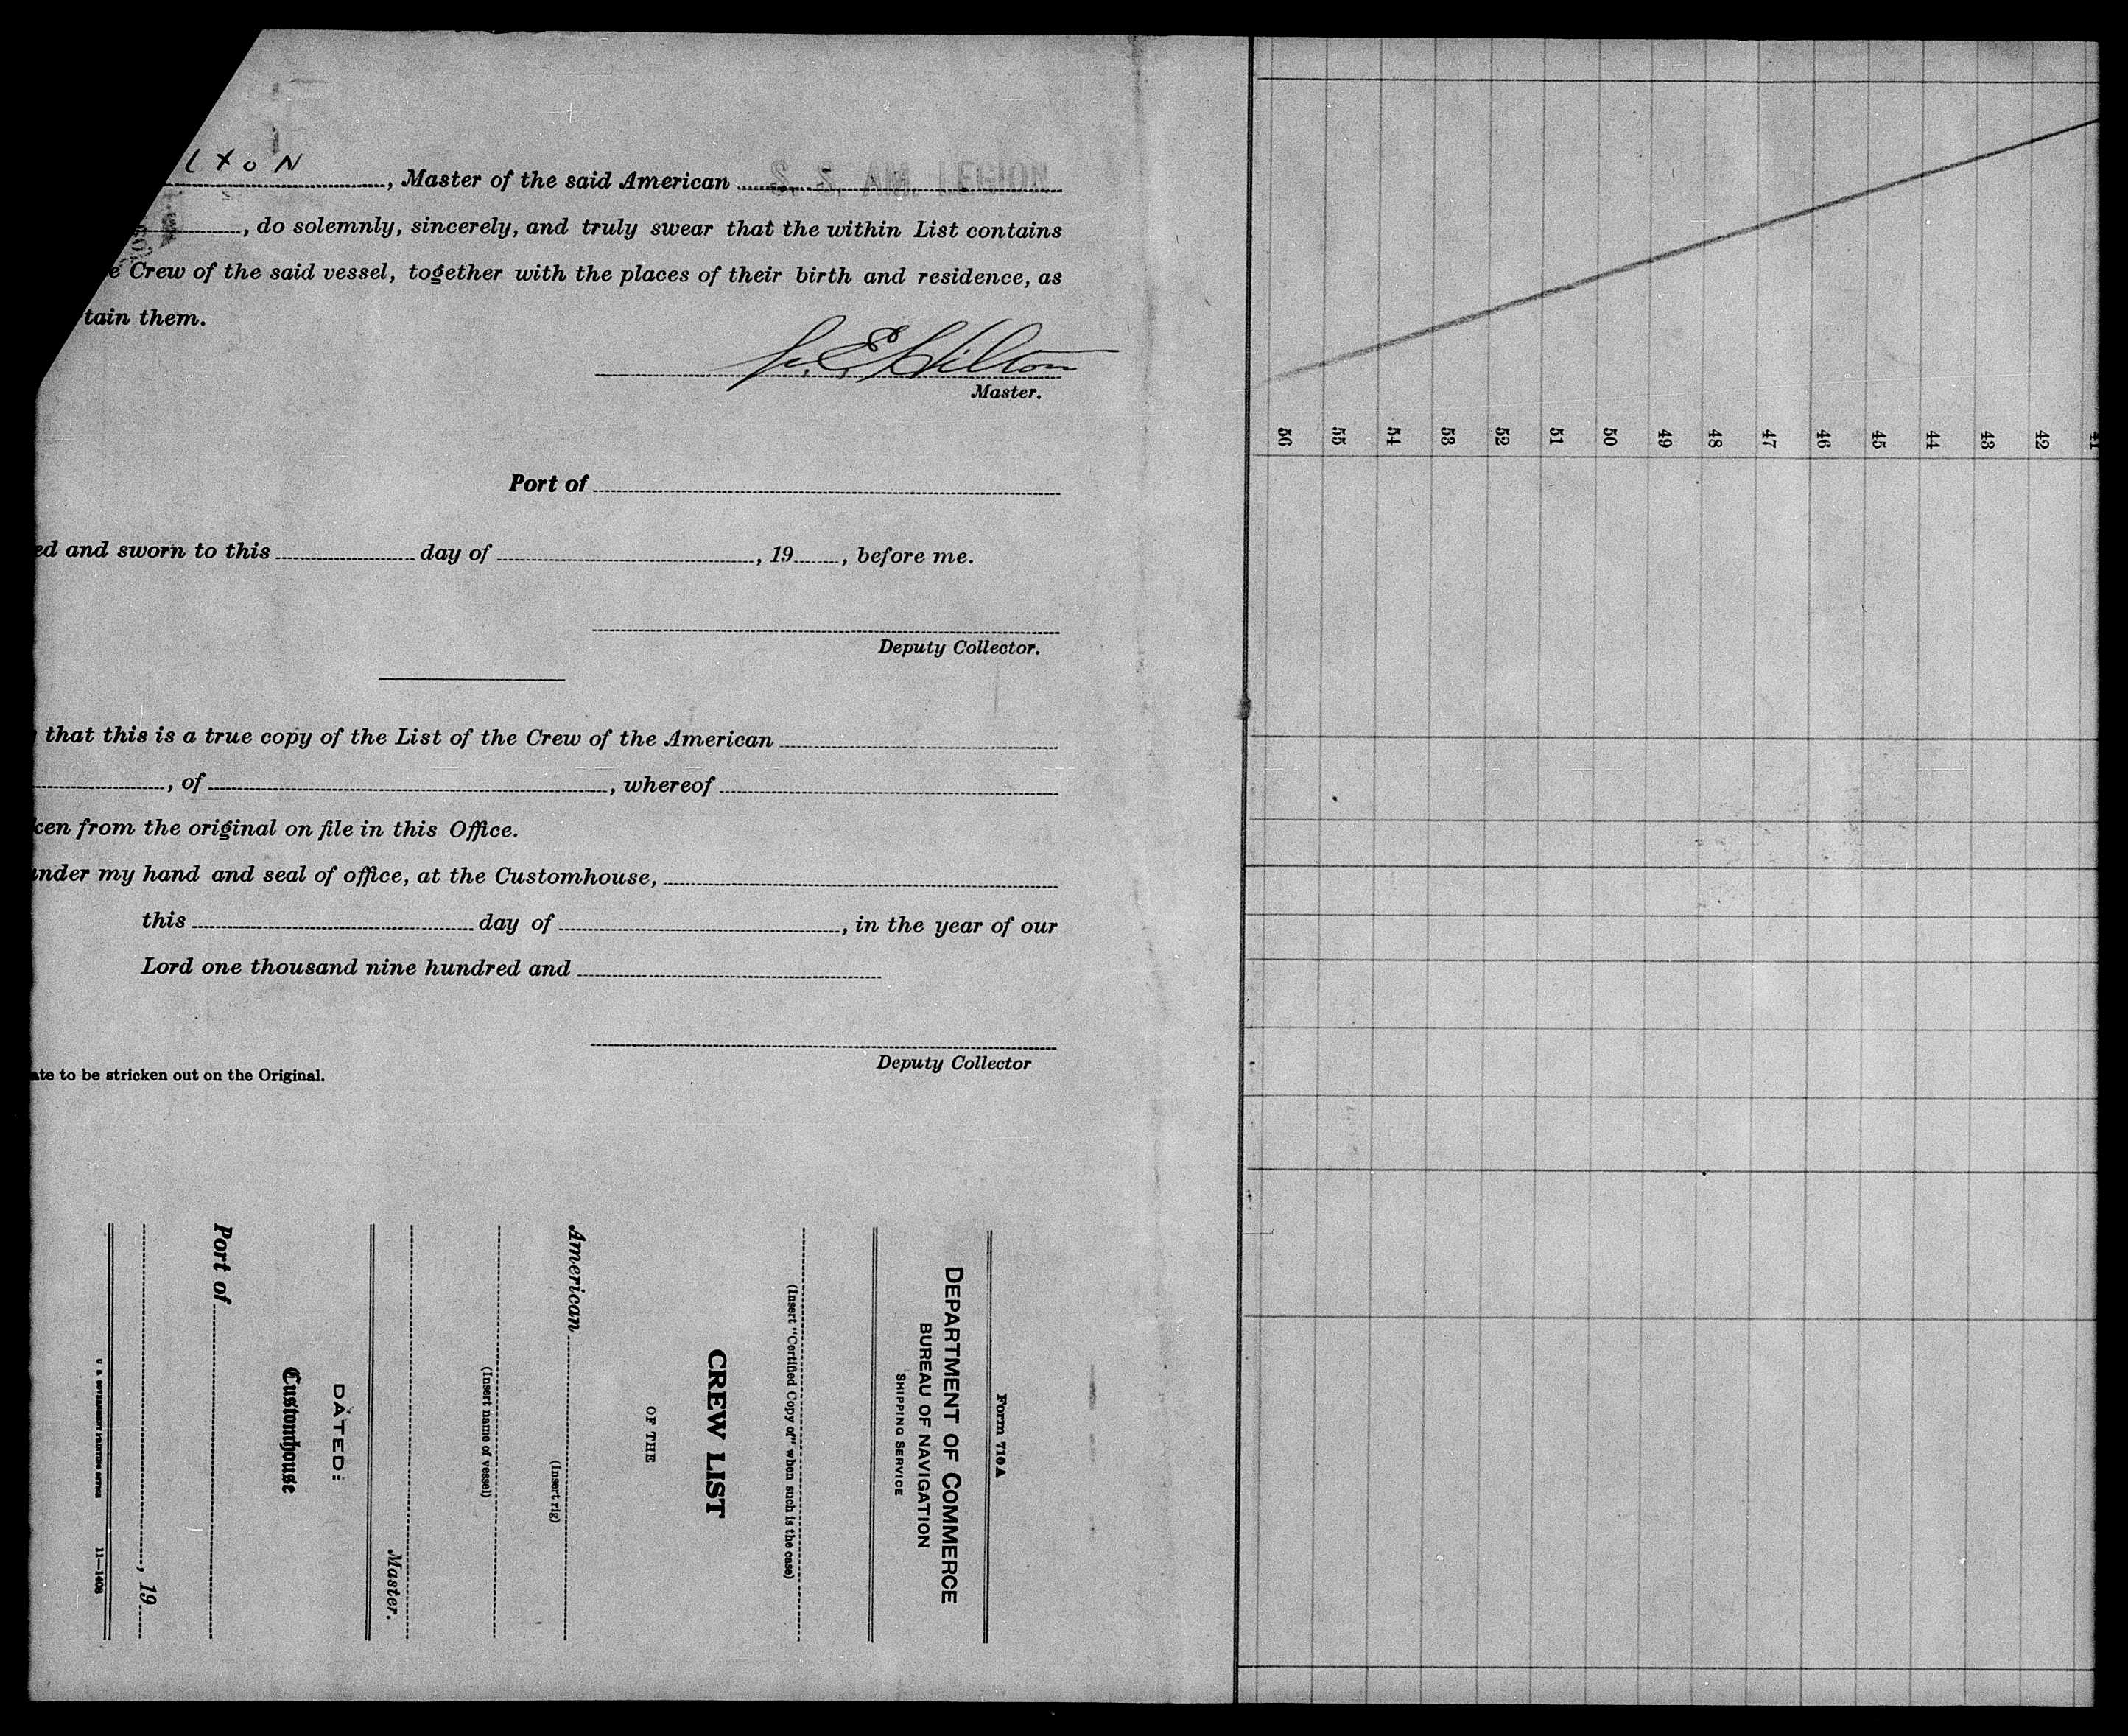 LTON, Master of the said American S. S. AM. LEGION
, do solemnly, sincerely, and truly swear that the within List contains
e Crew of the said vessel, together with the places of their birth and residence, as
tain them.
Hilton
Master.
Port of
ed and sworn to this day of , 19 , before me.
Deputy Collector.
that this is a true copy of the List of the Crew of the American
, of , whereof
ken from the original on file in this Office.
under my hand and seal of office, at the Customhouse,
this day of , in the year of our
Lord one thousand nine hundred and
Deputy Collector
ate to be stricken out on the Original.
Form 710A
DEPARTMENT OF COMMERCE
BUREAU OF NAVIGATION
SHIPPING SERVICE
(Insert "Certified Copy of" when such is the case)
CREW LIST
OF THE
American
(Insert rig)
(Insert name of vessel)
Master.
DATED:
Customhouse
Port of
, 19
U. S. GOVERNMENT PRINTING OFFICE 11—1408
41
42
43
44
45
46
47
48
49
50
51
52
53
54
55
56